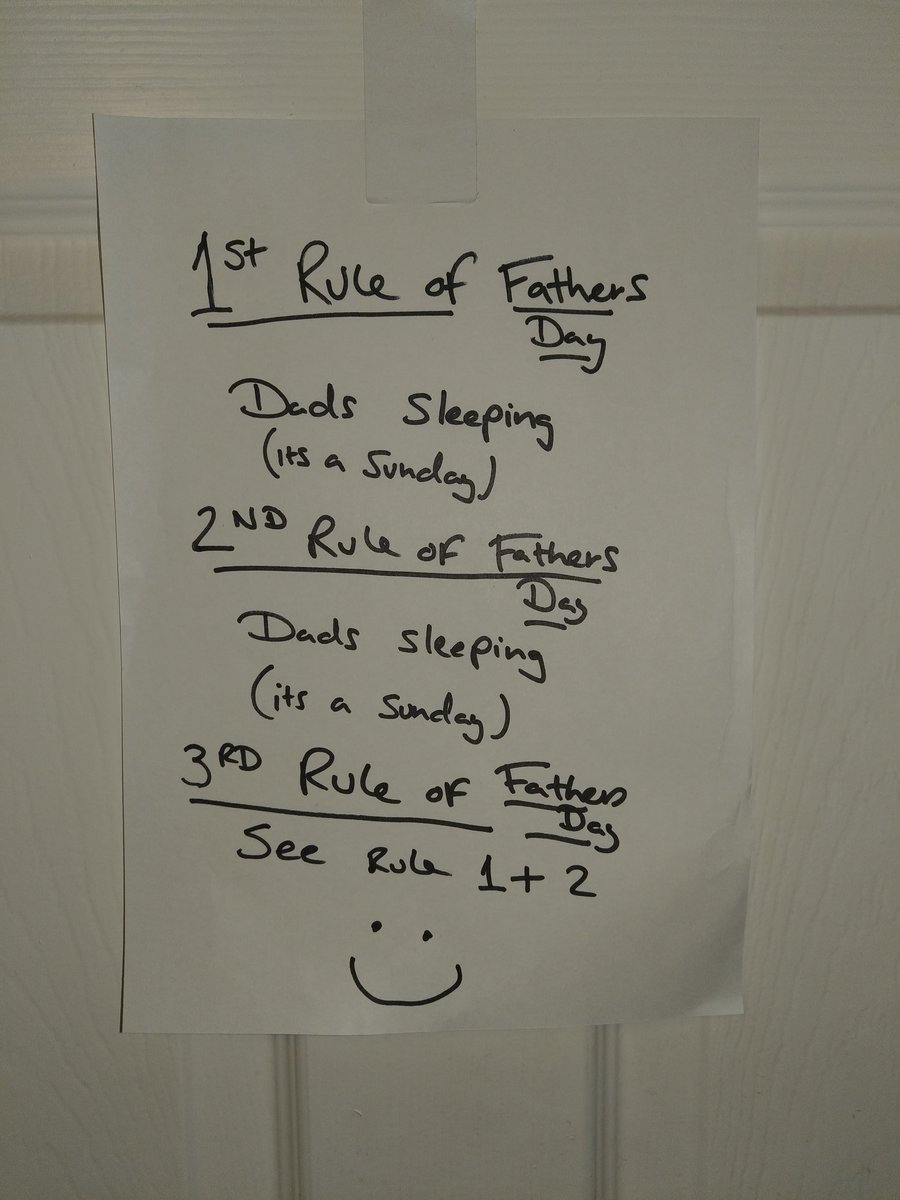 1st Rule of Fathers
Day
Dads Sleeping
(its a Sunday)
2ND Rule of Fathers
Day
Dads sleeping
(its a sunday)
3RD Rule of Fathers
Day
See Rule 1 + 2